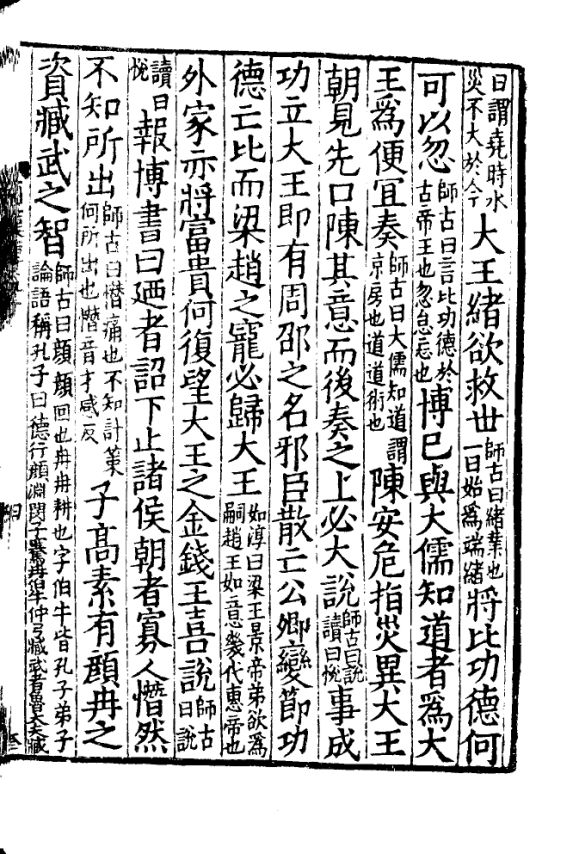 曰謂堯時水災不大於今大王緒欲救世師古曰緒業也一曰始爲端緒將比功德何
可以忽師古曰言比功德於古帝王也忽怠忘也博已與大儒知道者爲大
王爲便宜奏師古曰大儒知道謂京房也道道術也陳安危指災異大王
朝見先口陳其意而後奏之上必大說師古曰說讀曰悅事成
功立大王即有周邵之名邪臣散亡公卿變節功
德亡比而梁趙之寵必歸大王如淳曰梁王景帝弟欲爲嗣趙王如意幾代惠帝也
外家亦將富貴何復望大王之金錢王喜說師古曰說
讀曰悅報博書曰廼者詔下止諸侯朝者寡人憯然
不知所出師古曰憯痛也不知計策何所出也憯音才感反子高素有顔冉之
資臧武之智師古曰顔顔回也冉冉耕也字伯牛皆孔子弟子論語稱孔子曰德行顔淵閔子騫冉伯牛仲弓臧武者魯大夫臧